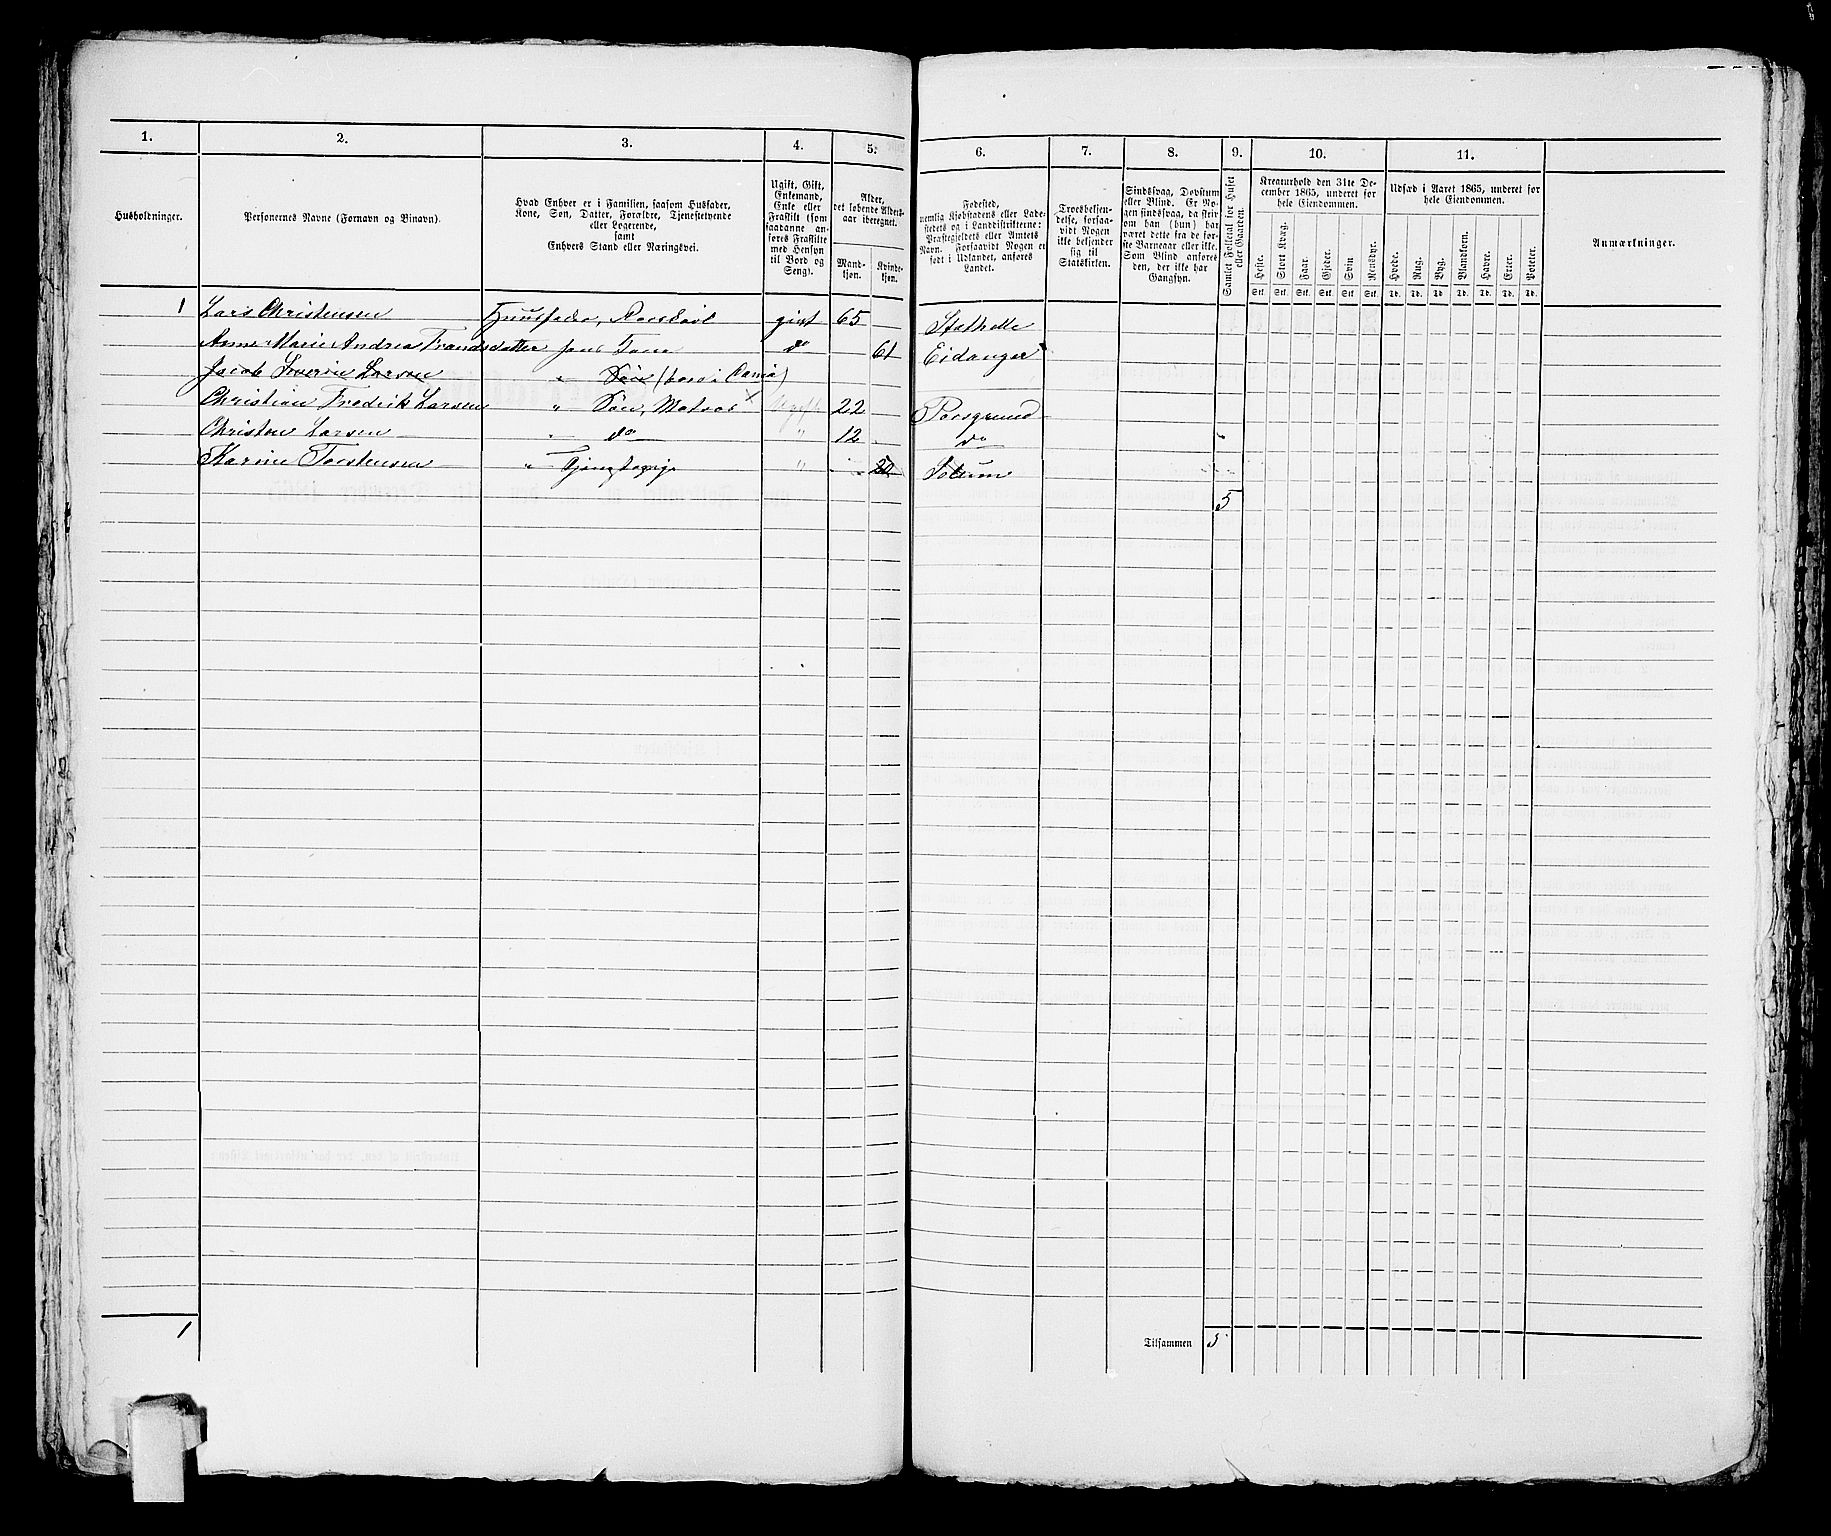 1. 2. 3. 4. 5. 6. 7. 8. 9. 10. 11.
Husholdninger.
Personernes Navne (Fornavn og Binavn).
Hvad Enhver er i Familien, saasom Husfader,
Kone, Søn, Datter, Forældre, Tjenestetyende
eller Logerende,
samt
Enhvers Stand eller Næringsvei.
Ugift, Gift,
Enkemand,
Enke eller
Fraskilt (som
saadanne an-
føres Fraskilte
med Hensyn
til Bord og
Seng).
Alder,
det løbende Alders-
aar iberegnet.
Mand-
kjøn.
Kvinde-
kjøn.
Fødested,
nemlig Kjøbstadens eller Lade-
stedets og i Landdistrikterne:
Præstegjeldets eller Amtets
Navn. Forsaavidt Nogen er
født i Udlandet, anføres
Landet.
Troesbekjen-
delse, forsaa-
vidt Nogen
ikke bekjender
sig til
Statskirken.
Sindssvag, Døvstum
eller Blind. Er No-
gen sindssvag, da skriv
om han (hun) har
været dette fra de før-
ste Barneaar eller ikke.
Som Blind anføres
den, der ikke har
Gangsyn.
Samlet Folketal for Huset
eller Gaarden.
Kreaturhold den 31te De-
cember 1865, underet for
hele Eiendommen.
Heste. Stort Kvæg. Faar. Gjeder. Sviin. Rensdyr.
Stk. Stk. Stk. Stk. Stk. Stk.
Udsæd i Aaret 1865, underet for
hele Eiendommen.
Hvede. Rug. Byg. Blandkorn. Havre. Erter. Poteter.
Td. Td. Td. Td. Td. Td. Td.
Anmærkninger.
1 Lars Christensen Huusfader, gift 65 Stathelle
Anne Marie Andrea Frandsdatter hans Kone do 61 Eidanger
Jacob Severin Larsen " Søn
Christian Fredrik Larsen " Søn, Matros Ugift 22 Porsgrund
Christen Larsen " do " 12 do
Karine Torstensen " " 20 Solum
5
1 Tilsammen 5